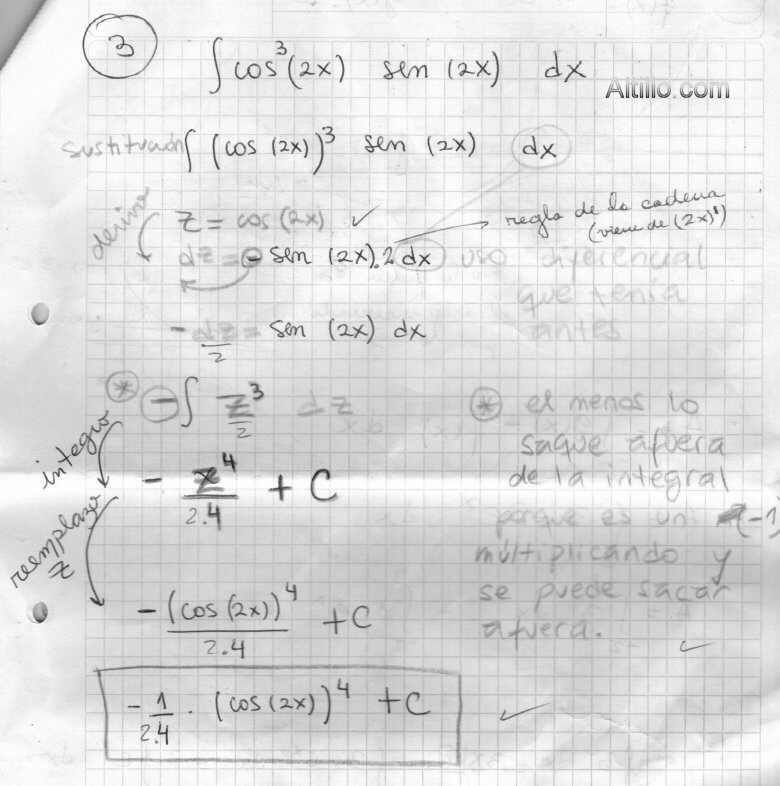 3
∫ cos³(2x) sen (2x) dx
Altillo.com
sustitución ∫ (cos (2x))³ sen (2x) dx
deriva
z = cos (2x) ✓
regla de la cadena
(viene de (2x)')
dz = - sen (2x).2 dx uso diferencial
que tenía
antes
- dz/2 = sen (2x) dx
* - ∫ z³/2 dz
* el menos lo
saque afuera
de la integral
porque es un (-1)
multiplicando y
se puede sacar
afuera. ✓
integro
- z⁴/2.4 + C
reemplazo
z
- (cos (2x))⁴/2.4 + C
- 1/2.4 . (cos (2x))⁴ + C ✓